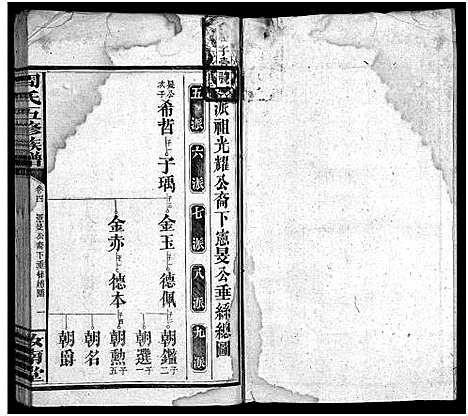 派祖光耀公裔下憲旻公垂絲總圖
五派 六派 七派 八派 九派
旻公
次子
希哲
子瑀
金玉
德佩
朝鑑
朝選
金赤
德本
朝勳
朝名
朝爵
周氏五修族譜
卷四
汝南堂